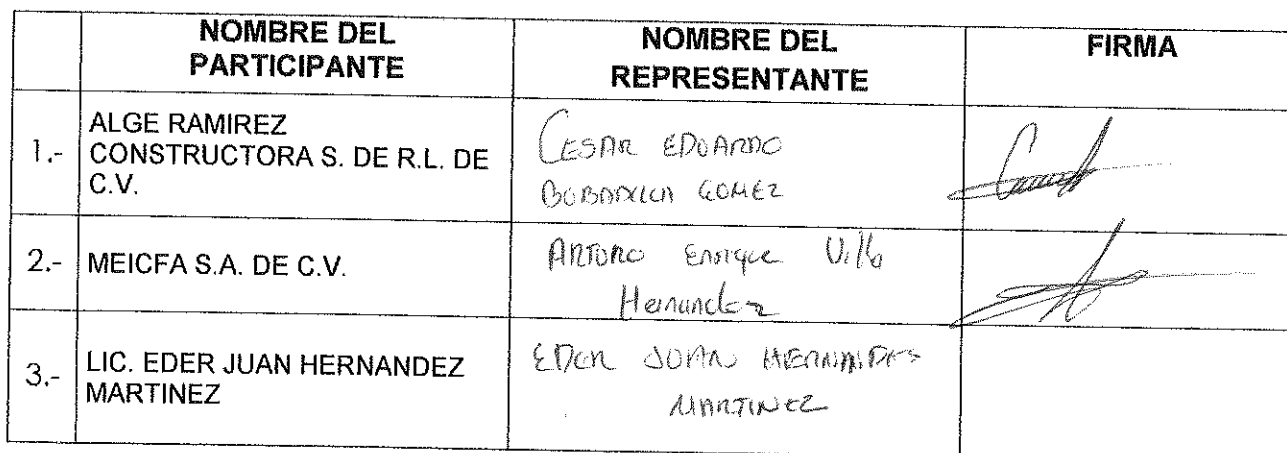 NOMBRE DEL
PARTICIPANTE
NOMBRE DEL
REPRESENTANTE
FIRMA
1.-
ALGE RAMIREZ
CONSTRUCTORA S. DE R.L. DE
C.V.
CESAR EDUARDO
BOBADILLA GOMEZ
2.-
MEICFA S.A. DE C.V.
ARTURO Enrique Villa
Hernandez
3.-
LIC. EDER JUAN HERNANDEZ
MARTINEZ
EDER JUAN HERNANDEZ
MARTINEZ